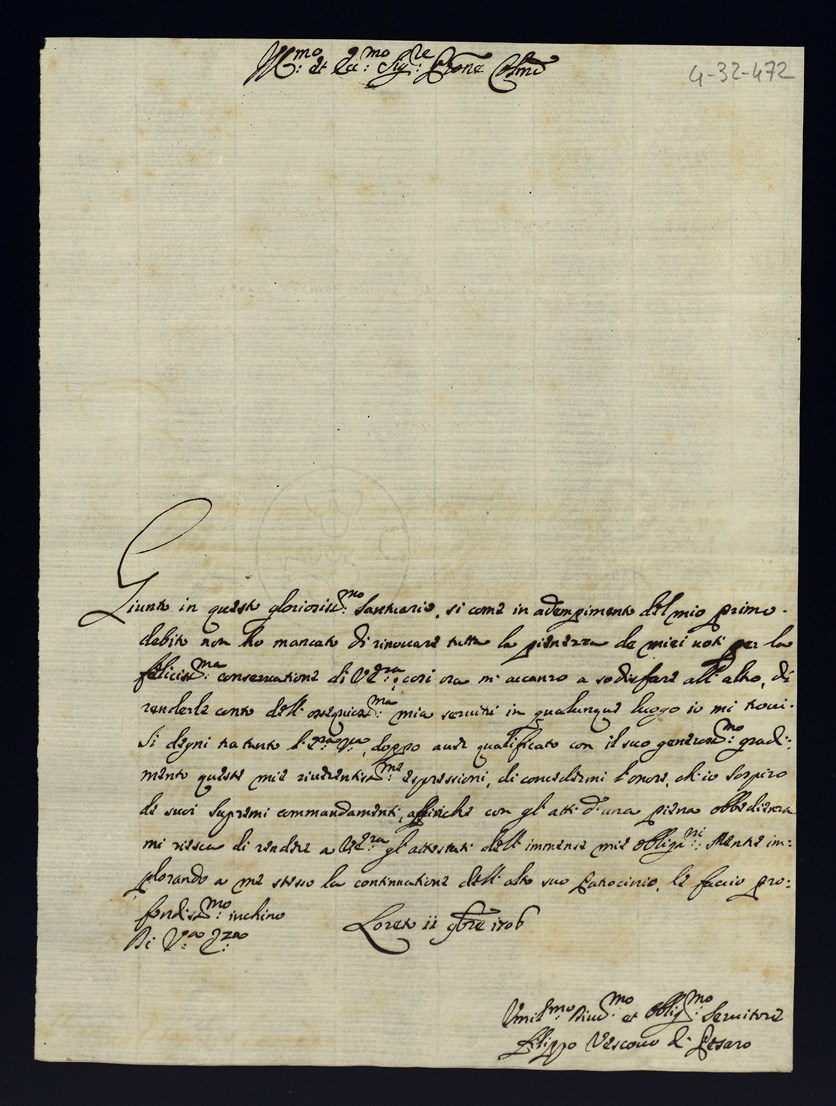 Ill.mo et Ecc.mo Sig.re Prone Colmo
4-32-472
Giunto in questo gloriosiss.mo Santuario, si come in adempimento del mio primo
debito non ho mancato di rinovare tutta la pienezza de miei voti per la
feliciss.ma conservatione di V.E.za, così ora m'avanzo a sodisfare all'altro, di
renderle conto dell'ossequios.ma mia servitù in qualunque luogo io mi trovi.
Si degni tratanto l'E.za V.ra, doppo aver qualificato con il suo generos.mo gradi:
mento queste mie riverentiss.me espressioni, di concedermi l'onore, ch'io sospiro
de suoi supremi commandamenti, affinche con gl'atti d'una piena obbedienza
mi riesca di rendere a V.E.za gl'attestati dell'immense mie obliga.ni: Mentre im:
plorando a me stesso la continuatione dell'alto suo Patrocinio, le faccio pro:
fondiss.mo inchino
Di V.ra E.za Loreto 11 9bre 1706
Umiliss.mo Div.mo et Oblig.mo Servitore
Filippo Vescovo di Pesaro